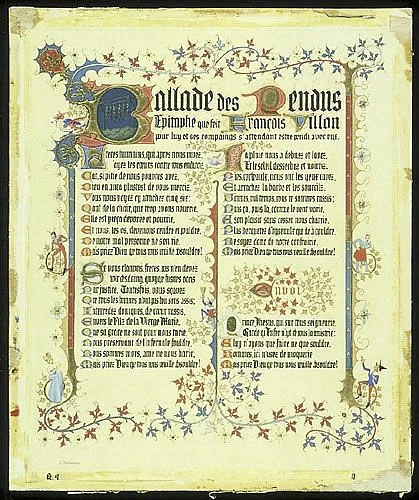 Ballade des Pendus
Epitaphe que feit François Villon
pour luy et ses compaings s'attendant estre pendu avec eux.
Freres humains, qui apres nous vivez,
N'ayez les cuers contre nous endurcis,
Car, si pitie de nous pouvez avez,
Dieu en aura plustost de vous mercis.
Vous nous voyez cy attachez cinq, six:
Quant de la chair, que trop avons nourrie,
Elle est pieça devoree et pourrie,
Et nous, les os, devenons cendre et pouldre.
De nostre mal personne ne s'en rie,
Mais priez Dieu que tous nous vueille absouldre!
Se vous clamons, freres, n'en devez
avoir desdaing, quoyque fusmes occis
Par justice. Toutesfois, vous sçavez
Que tous les hommes n'ont pas bon sens assis;
Intercedez doncques, de cueur rassis,
Envers le Filz de la Vierge Marie,
Que sa grace ne soit pour nous tarie,
Nous preservant de l'infernale fouldre.
Nous sommes mors, ame ne nous harie,
Mais priez Dieu que tous nous vueille absouldre!
La pluie nous a debuez et lavez,
Et le soleil dessechez et noircis.
Pies, corbeaulx, nous ont les yeux cavez,
Et arrachez la barbe et les sourcilz.
Jamais, nul temps, nous ne sommes rassis;
Puis ça, puis la, comme le vent varie,
A son plaisir sans cesser nous charie,
Plus becquetez d'oyseaulx que dez à couldre.
Ne soyez donc de notre confrairie,
Mais priez Dieu que tous nous vueille absouldre!
Envoi
Prince Jhesus, qui sur tous seigneurie,
Garde qu'Enfer n'ayt de nous la maistrie:
A luy n'ayons que faire ne que souldre.
Hommes, ici n'usez de mocquerie
Mais priez Dieu que tous nous vueille absouldre!